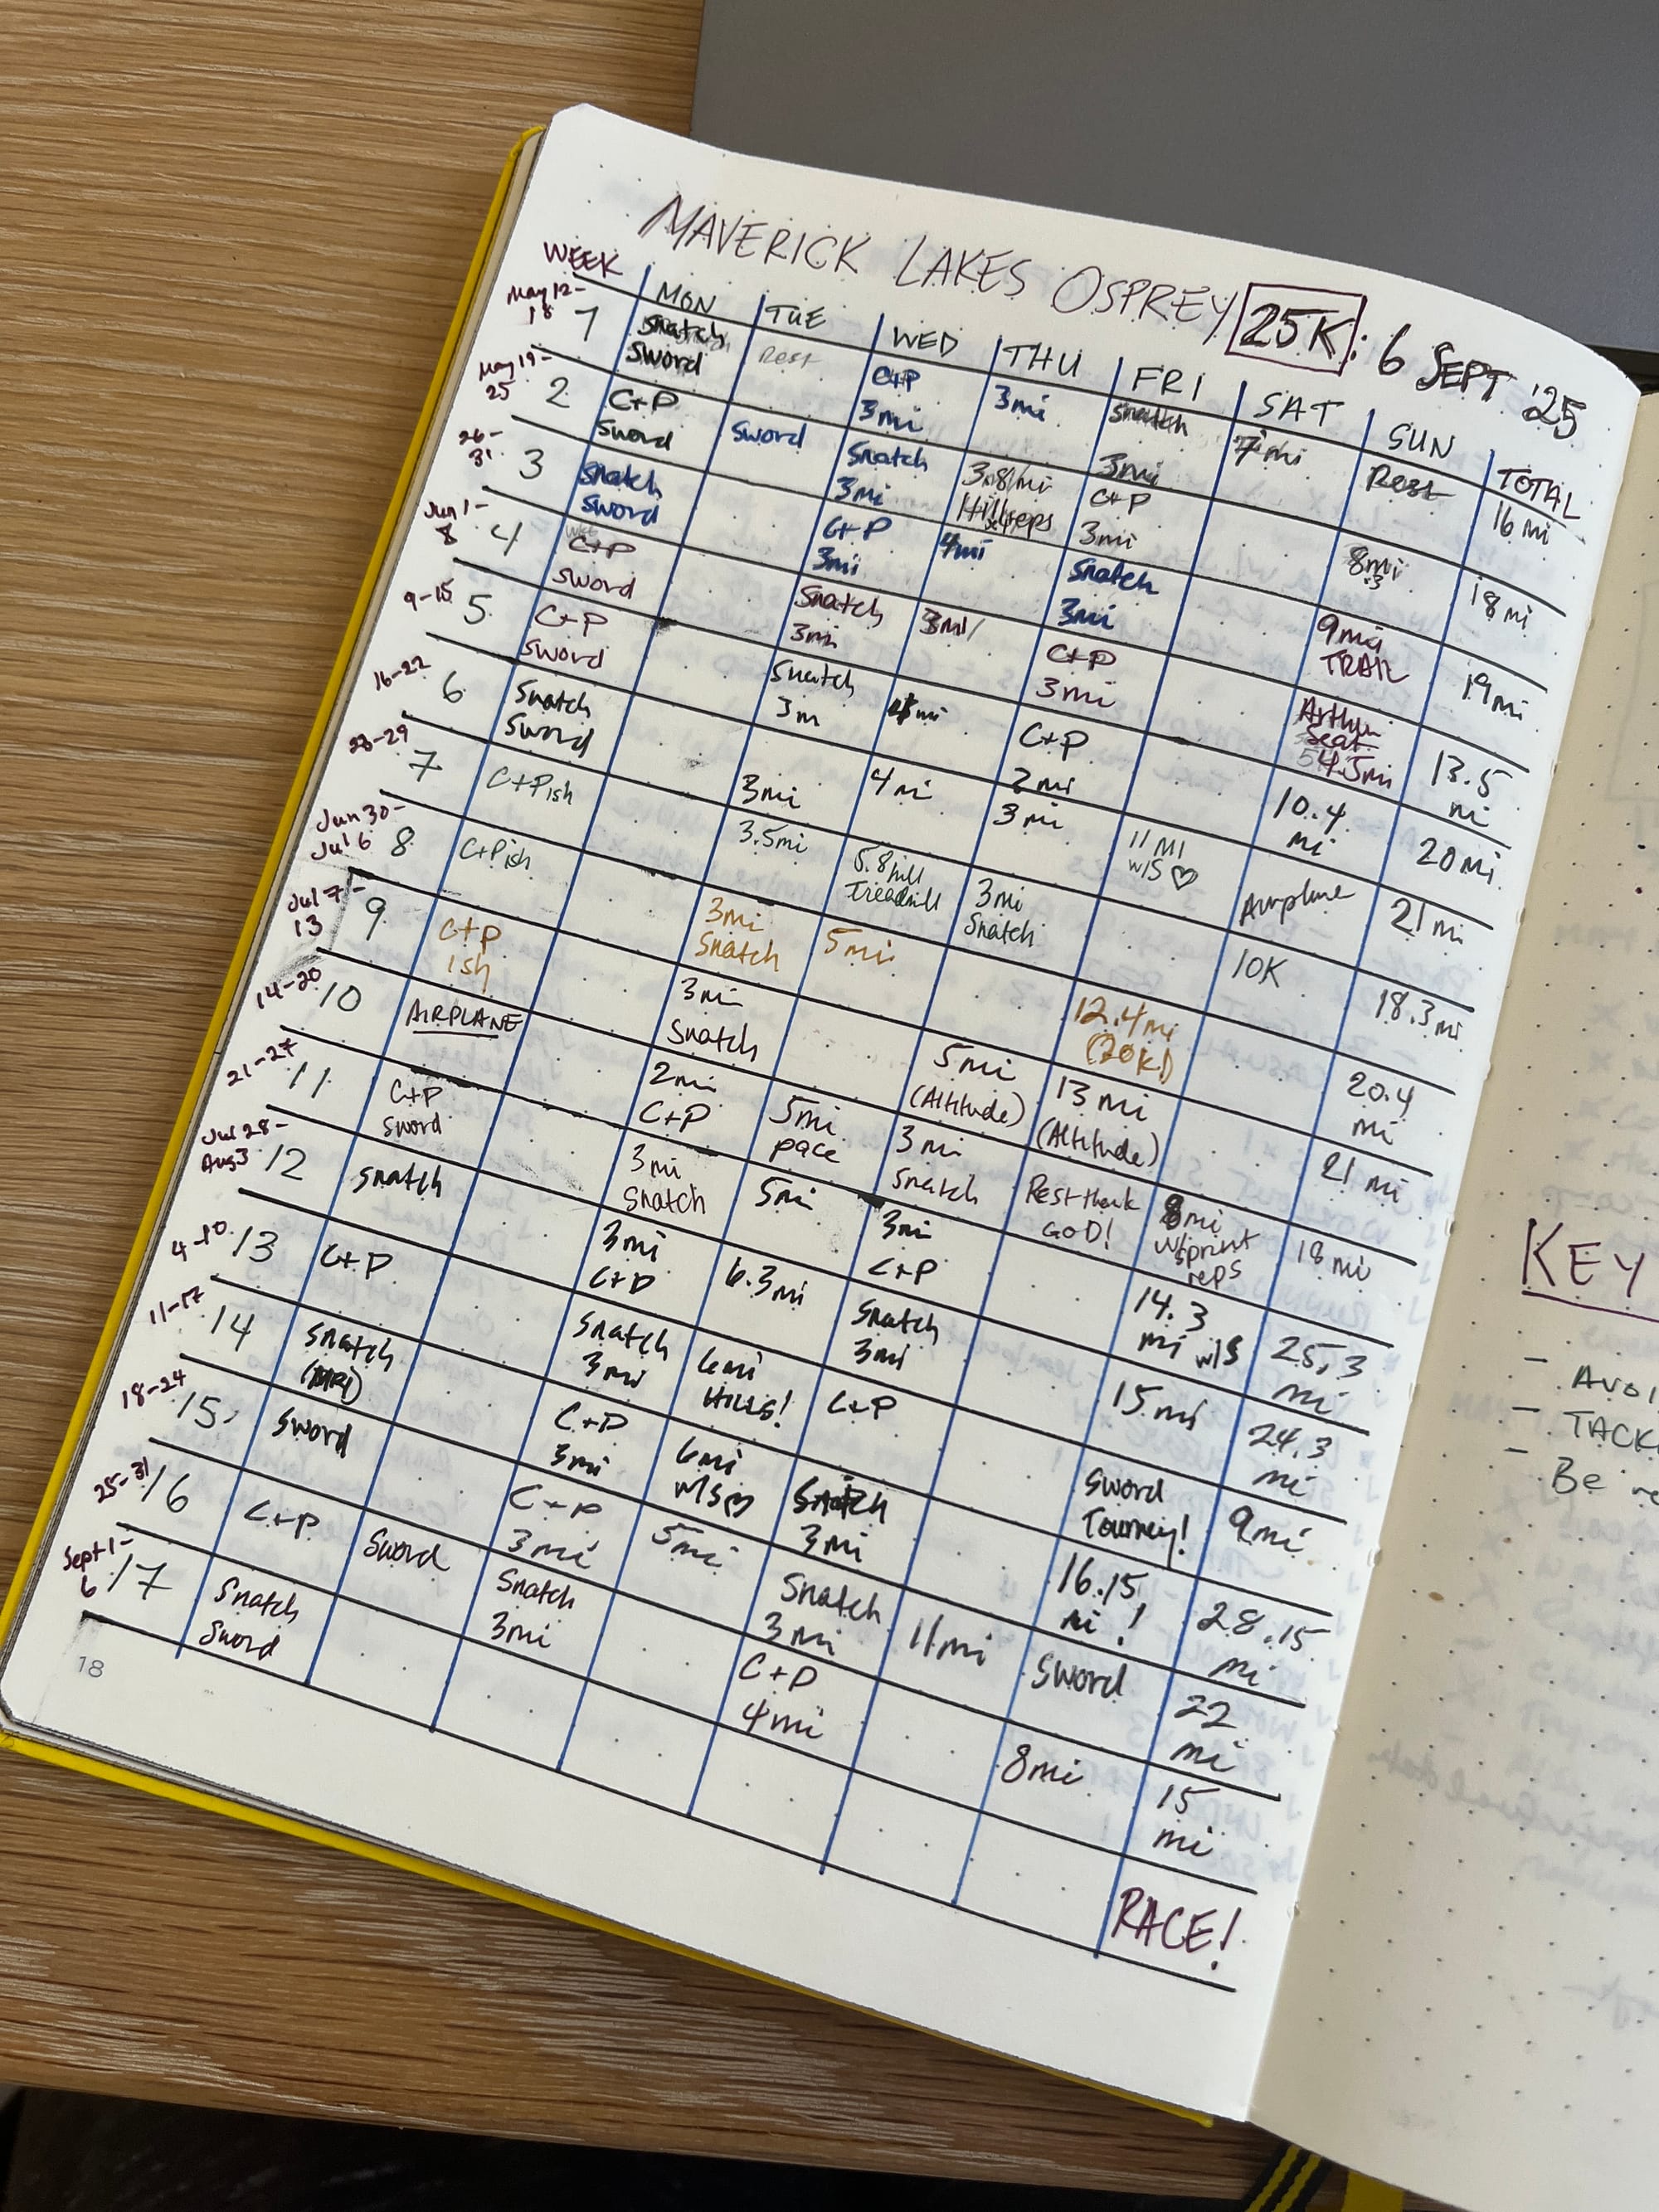 MAVERICK LAKES OSPREY 25K: 6 SEPT '25
WEEK MON TUE WED THU FRI SAT SUN TOTAL
May 12-18 1 Snatch Sword Rest C+P 3mi 3mi Snatch 3mi 7mi Rest 16 mi
May 19-25 2 C+P Sword Sword Snatch 3mi 3.8mi Hill reps x4 C+P 3mi 8mi .3 18 mi
26-31 3 Snatch Sword C+P 3mi 4mi Snatch 3mi 9mi TRAIL 19 mi
Jun 1-8 4 C+P Sword Snatch 3mi 3mi C+P 3mi Arthur Seat 4.5mi 13.5 mi
9-15 5 C+P Sword Snatch 3m mi C+P 2mi 10.4 mi 20 mi
16-22 6 Snatch Sword 3mi 4mi 3mi 11 MI w/S ♡ Airplane 21 mi
23-29 7 C+Pish 3.5mi 5.8 hill Treadmill 3mi Snatch 10K 18.3 mi
Jun 30-Jul 6 8 C+Pish 3mi Snatch 5mi 12.4mi (20K!) 20.4 mi
Jul 7-13 9 C+P ish 3mi Snatch 5mi (Altitude) 13 mi (Altitude) 21 mi
14-20 10 AIRPLANE 2mi C+P 5mi pace 3mi Snatch Rest thank GOD! 8mi w/sprint reps 18 mi
21-27 11 C+P Sword 3mi Snatch 5mi 3mi C+P 14.3 mi w/S 25.3 mi
Jul 28-Aug 3 12 Snatch 3mi C+P 6.3mi Snatch 3mi 15 mi 24.3 mi
4-10 13 C+P Snatch 3mi 6mi HILLS! C+P Sword Tourney! 9mi
11-17 14 Snatch (MRI) C+P 3mi 6mi w/S Snatch 3mi 16.15 mi! 28.15 mi
18-24 15 Sword C+P 3mi 5mi Snatch 3mi 11mi Sword 22 mi
25-31 16 C+P Sword Snatch 3mi C+P 4mi 8mi 15 mi
Sept 1-6 17 Snatch Sword RACE!
18
KEY
- AVOI
- TACK
- Be re